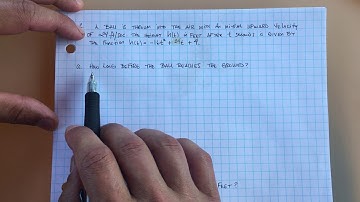 A BALL IS THROWN INTO THE AIR WITH AN INITIAL UPWARD VELOCITY
OF 24 ft/sec THE HEIGHT h(t) IN FEET AFTER t SECONDS IS GIVEN BY
THE FUNCTION h(t) = -16t² + 24t + 9.
a. HOW LONG BEFORE THE BALL REACHES THE GROUND?
FEET?